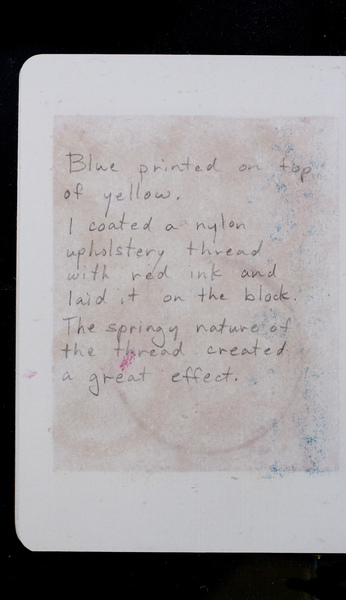 Blue printed on top
of yellow.
I coated a nylon
upholstery thread
with red ink and
laid it on the block.
The springy nature of
the thread created
a great effect.